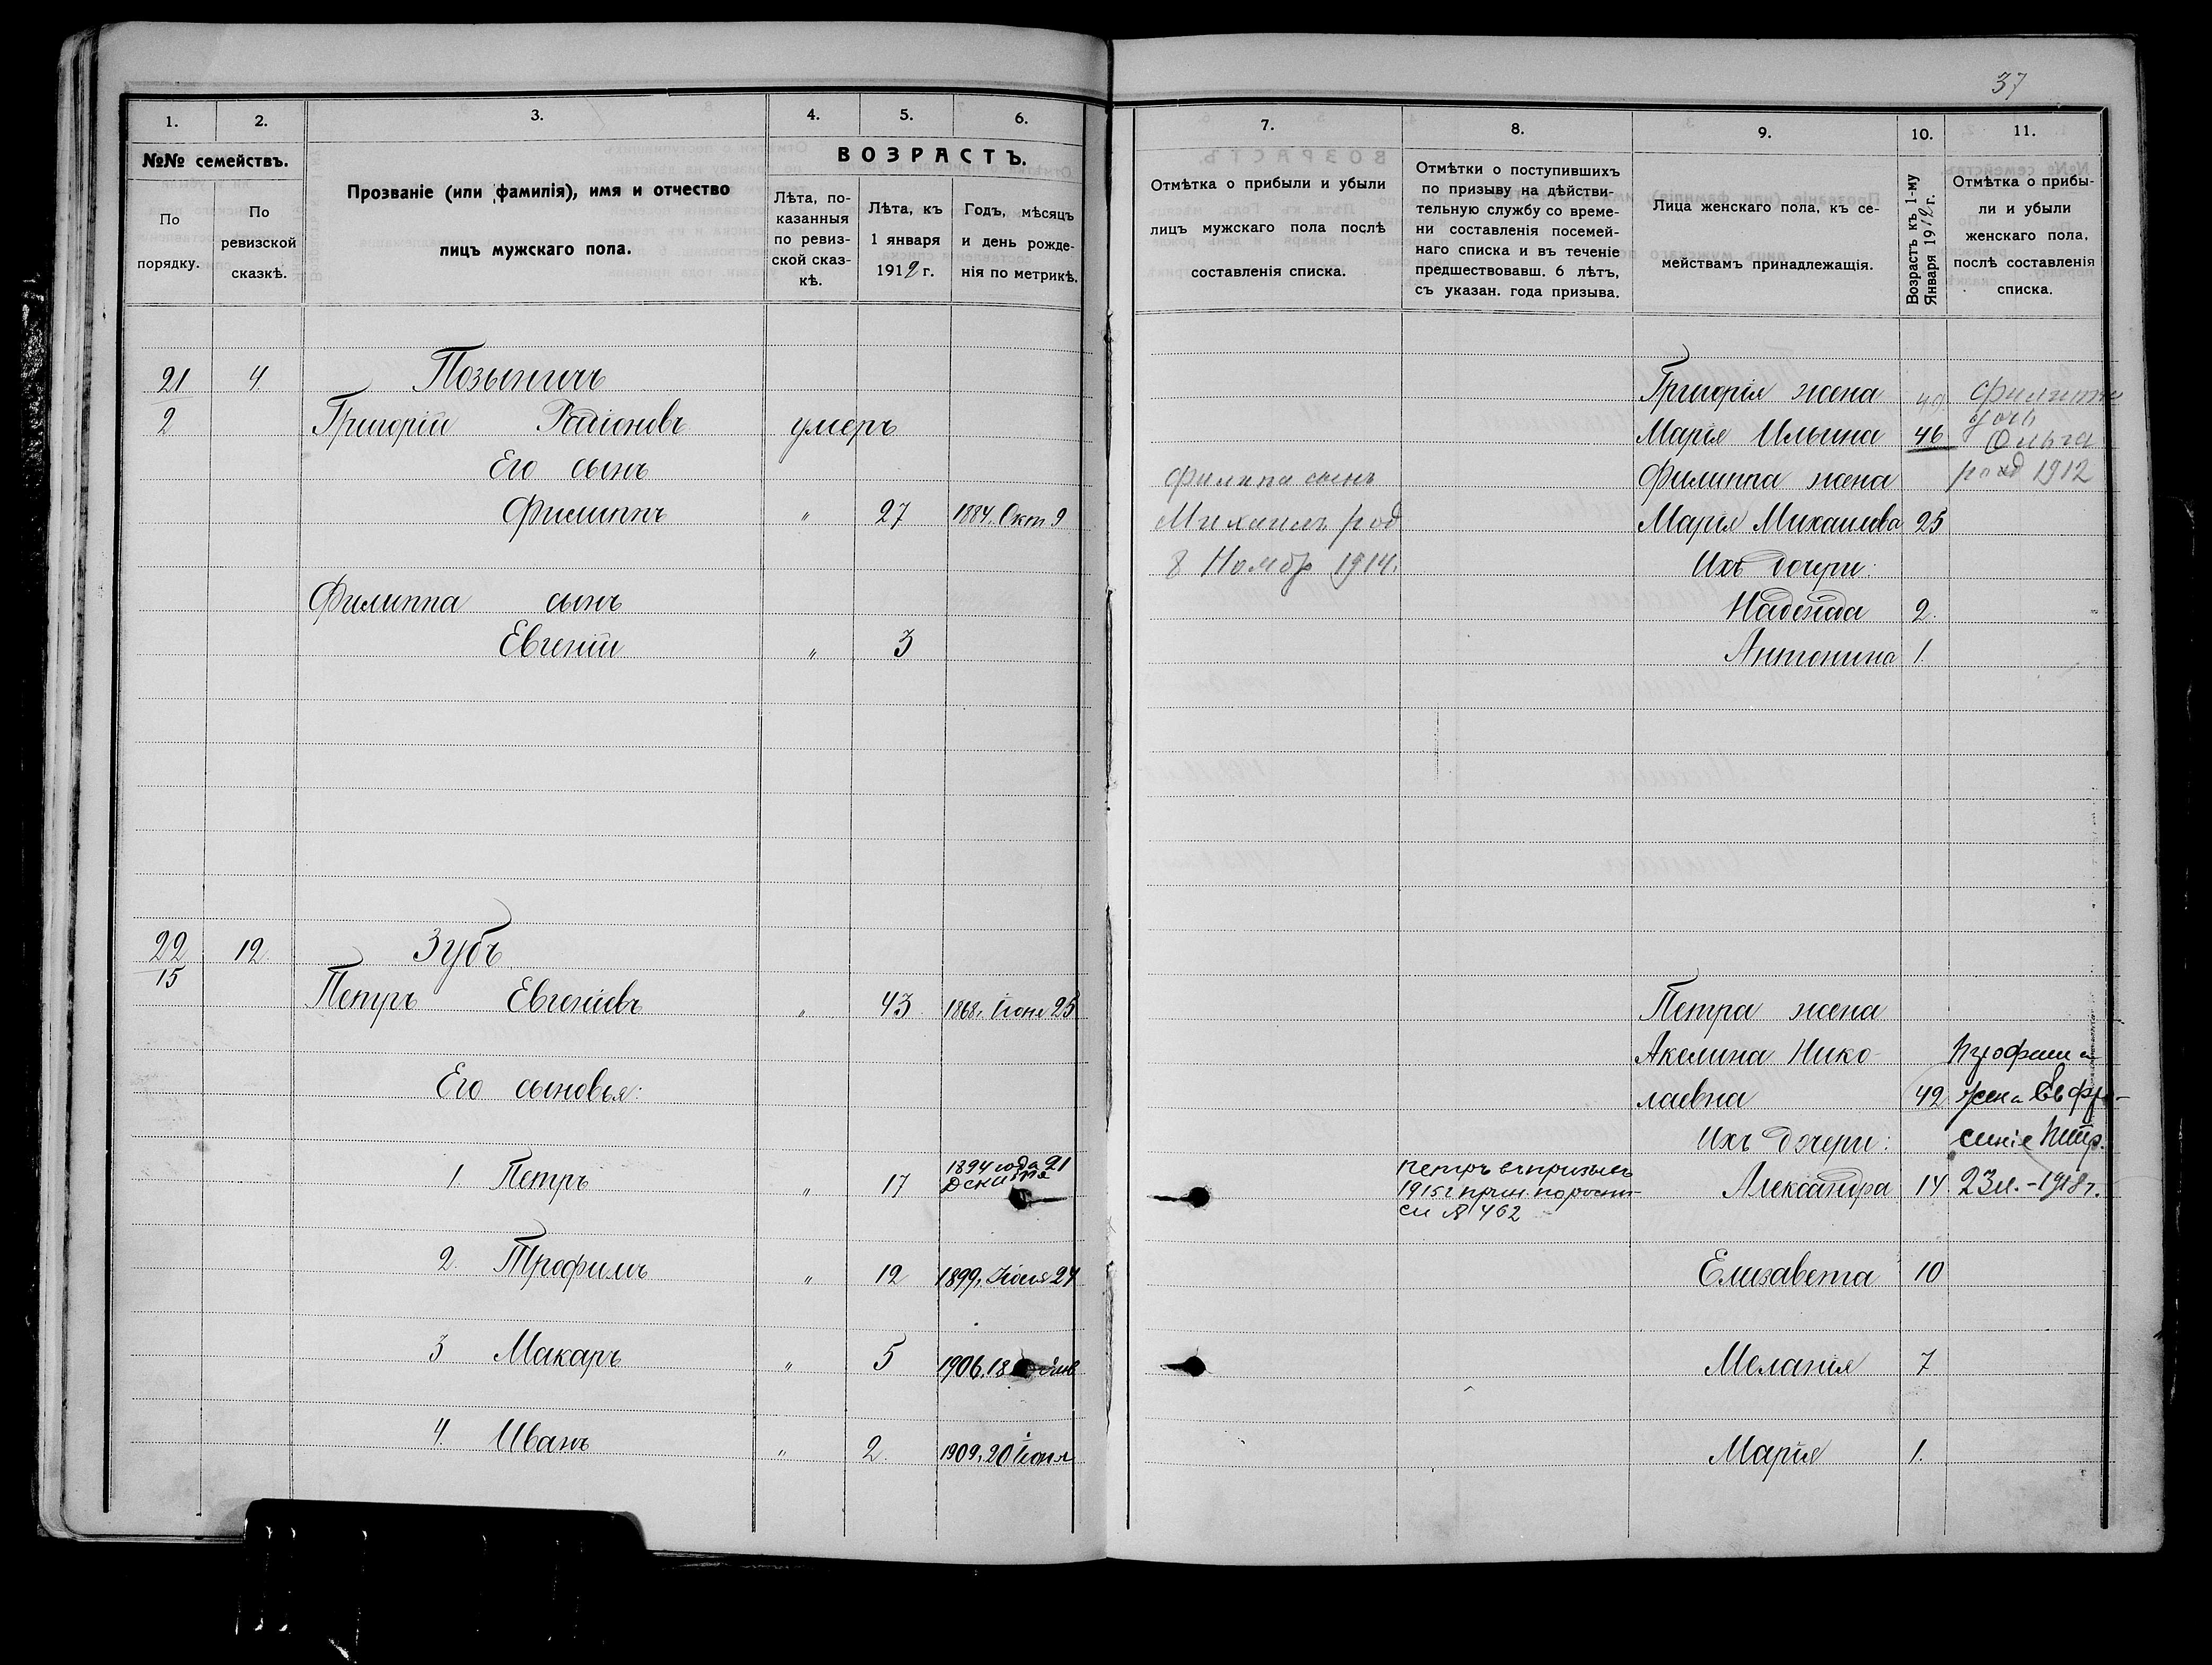 37
1. 2. 3. 4. 5. 6.
№№ семействъ.
По порядку.
По ревизской сказкѣ.
Прозваніе (или фамилія), имя и отчество
лицъ мужскаго пола.
ВОЗРАСТЪ.
Лѣта, по-
казанныя
по ревиз-
ской сказ-
кѣ.
Лѣта, къ
1 января
1912 г.
Годъ, мѣсяцъ
и день рожде-
нія по метрикѣ.
21 4 Позыничъ
2 Григорій Радіоновъ умеръ
Его сынъ
Филиппъ " 27 1884, Окт 9
Филиппа сынъ
Евгеній " 3
22 12 Зубъ
15
Петръ Евгеніевъ " 43 1868, Іюня 25
Его сыновья:
1 Петръ " 17 1894 года 21
2. Трофимъ " 12 1899, Іюля 24
3 Макаръ " 5 1906, 18 Янв
4. Иванъ " 2. 1909, 20 Іюня
7. 8. 9. 10. 11.
Отмѣтка о прибыли и убыли
лицъ мужскаго пола послѣ
составленія списка.
Отмѣтки о поступившихъ
по призыву на дѣйстви-
тельную службу со време-
ни составленія посемей-
наго списка и въ теченіе
предшествовавш. 6 лѣтъ,
съ указан. года призыва.
Лица женскаго пола, къ се-
мействамъ принадлежащія.
Возрастъ къ 1-му
Января 1912 г.
Отмѣтка о прибы-
ли и убыли
женскаго пола,
послѣ составленія
списка.
Григорія жена 49
Марія Ильина 46
дочь
Ольга
Филиппа сынъ Филиппа жена род 1912
Михаилъ род Марія Михаилова 25
8 Ноябр 1914. Ихъ дочери:
Надежда 2.
Антонина 1.
Петра жена
Акелина Нико-
лаевна 42 жена Евфро-
Ихъ дочери: синіе Петр.
Петръ въ призывъ
1915 г прин. по роспи-
си № 462
Александра 14 23 л. - 1918 г.
Елизавета 10
Меланія 7
Марія 1.